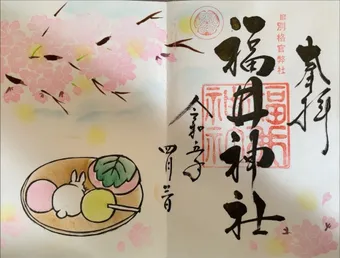 奉拝
別格官幣社
福井神社
福井神社
令和五年
四月